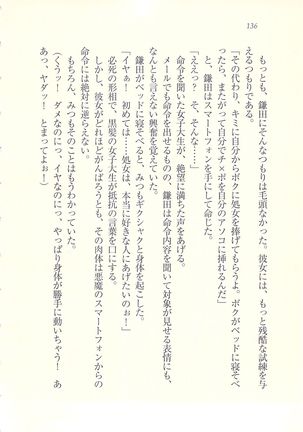 136
もっとも、鎌田にそんなつもりは毛頭なかった。彼女には、もっと残酷な試練を与
えるつもりである。
「その代わり、キミに自分からボクに処女を捧げてもらうよ。ボクがベッドに寝そべ
ったら、またがって自分でチ×ポを自分のアソコに挿れるんだ」
と、鎌田はスマートフォンを手にして命じた。
「ええっ？　そ、そんな……」
命令を聞いた女子大生が、絶望に満ちた声をあげる。
メールでも命令を出せるものの、鎌田は命令内容を聞いて対象が見せる表情にも、
なんとも言えない興奮を覚えていた。
鎌田がベッドに寝そべると、みつもギクシャクと身体を起こした。
「イヤぁ！　初めては……処女は、本当に好きな人にあげたいのぉ！」
必死の形相で、黒髪の女子大生が抵抗の言葉を口にする。
しかし、彼女がどれほどがんばろうとも、その肉体は悪魔のスマートフォンからの
命令には絶対に逆らえない。
もちろん、みつもそのことはもうわかっていた。
（くうッ！　ダメなのにっ、イヤなのにっ、やっぱり身体が勝手に動いちゃう！　あ
あっ、ヤダッ！　とまってよぉ！）